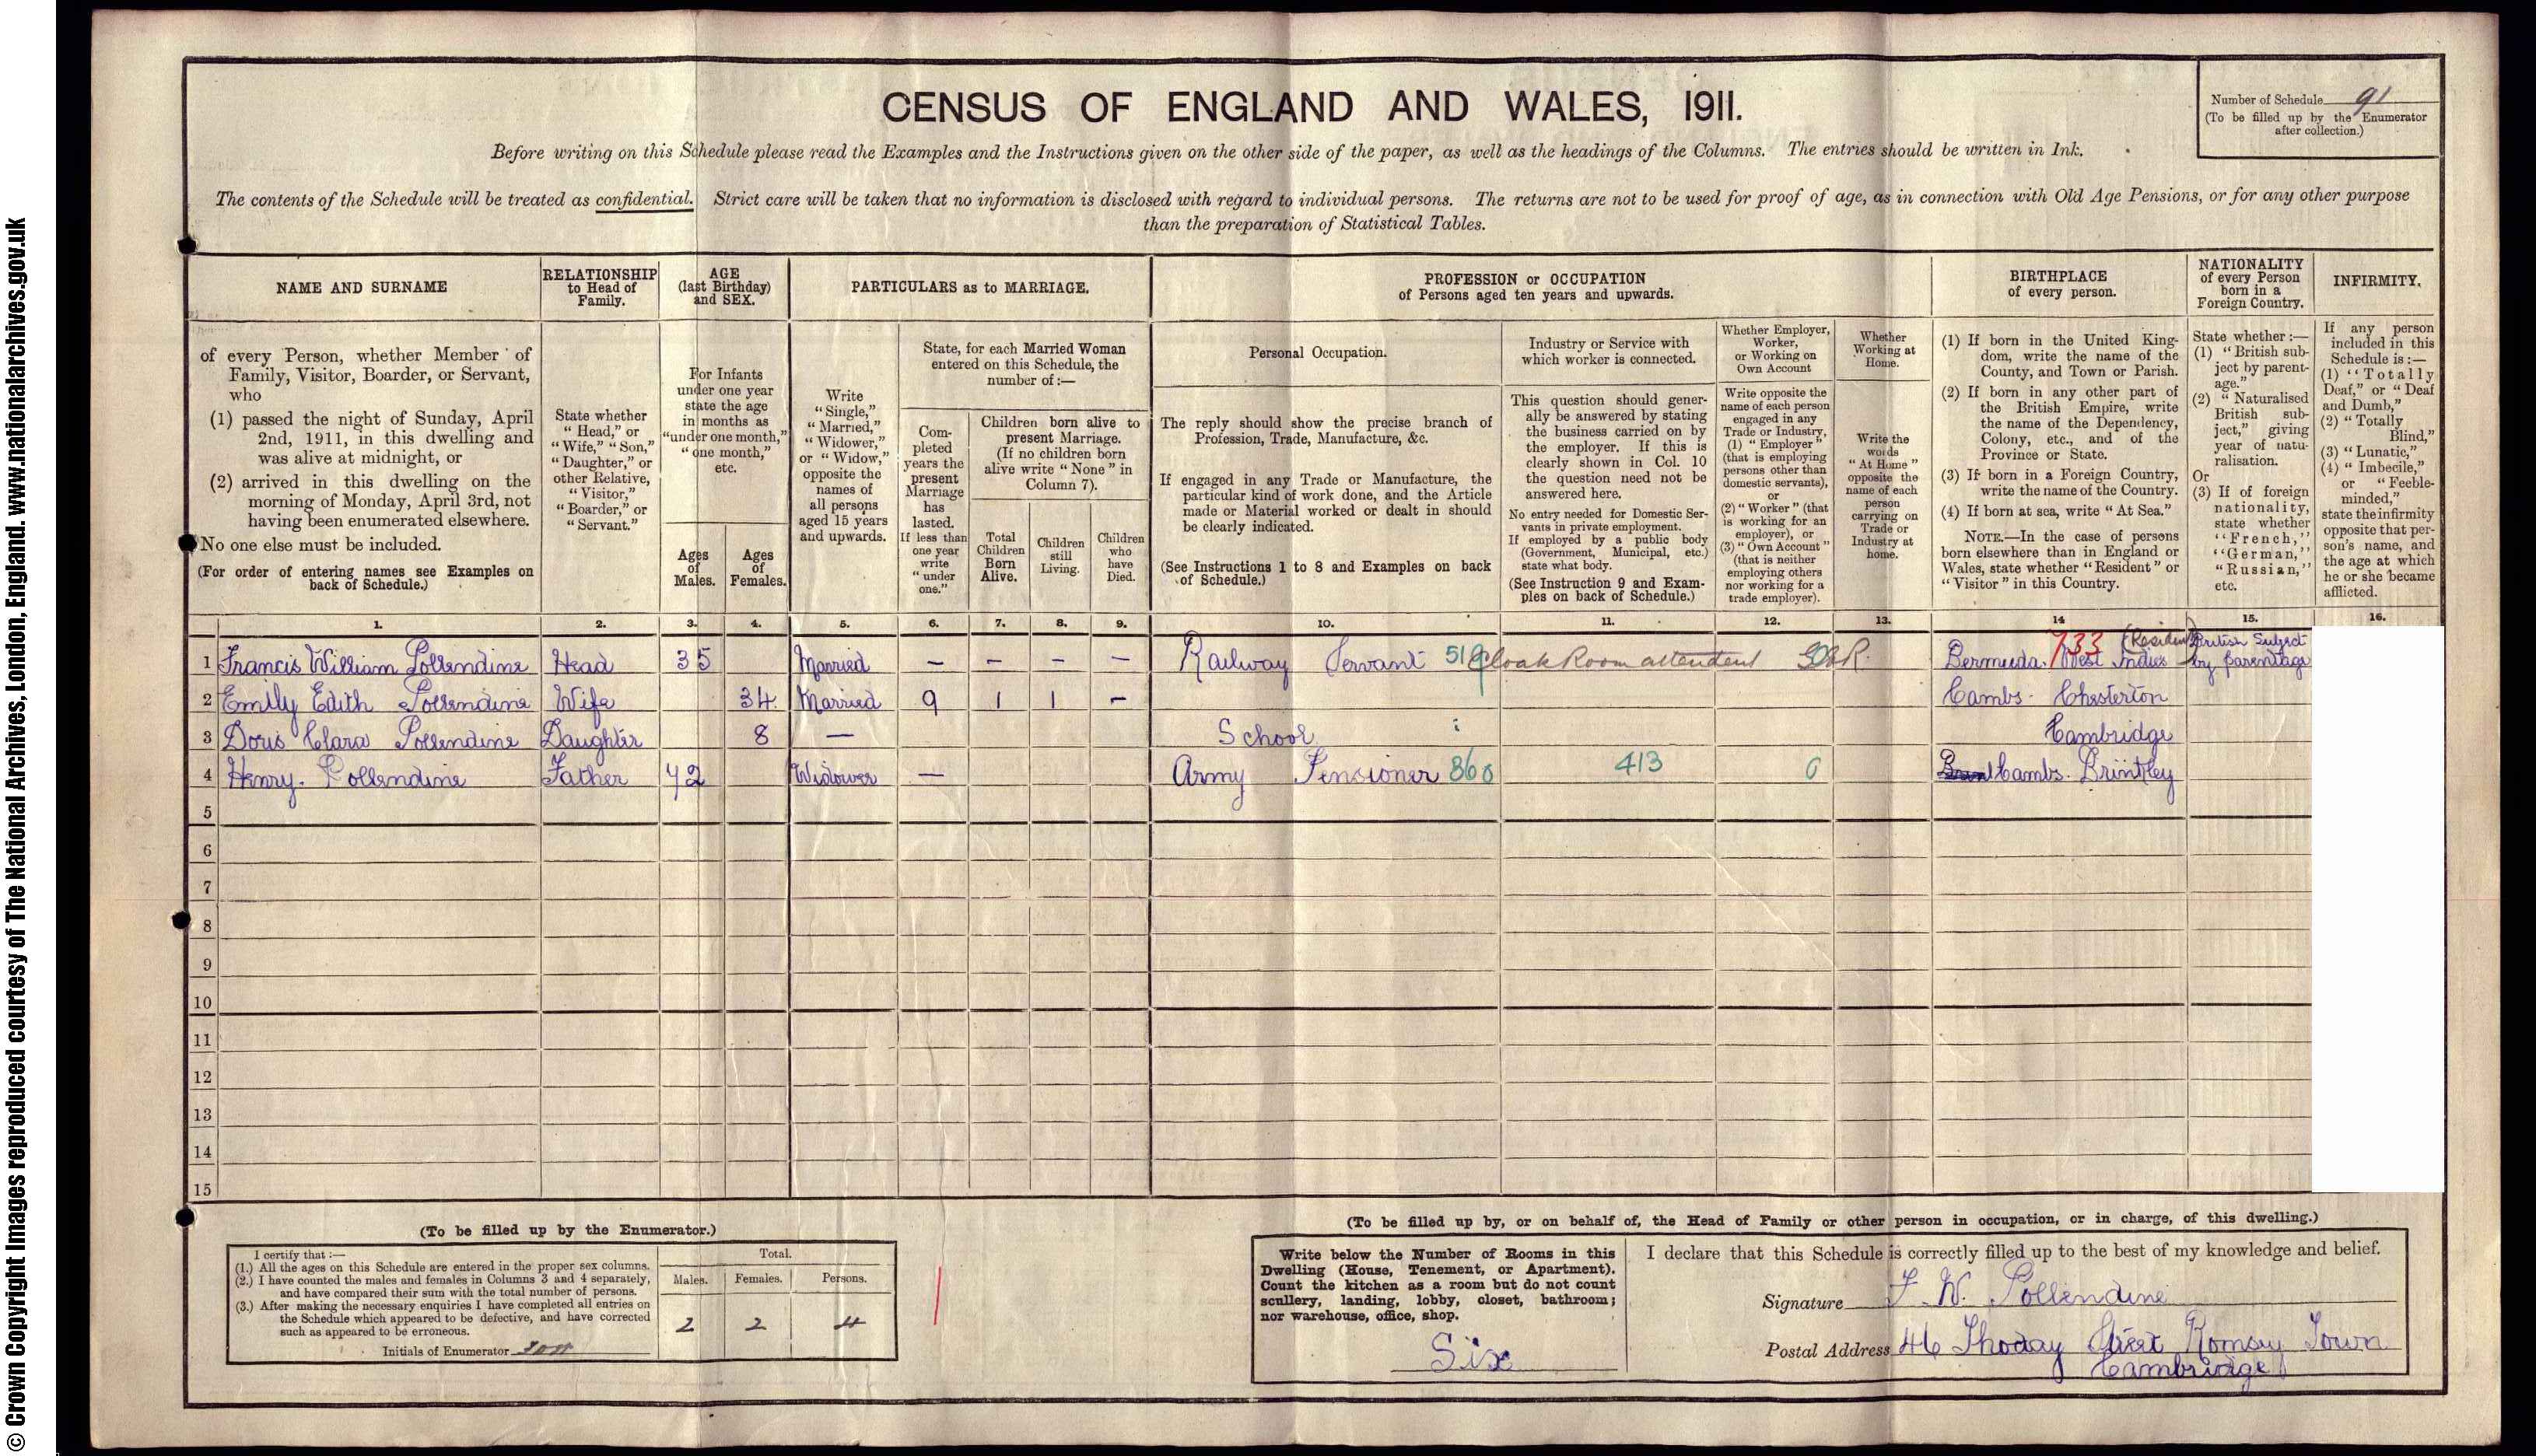 © Crown Copyright Images reproduced courtesy of The National Archives, London, England. www.nationalarchives.gov.uk
CENSUS OF ENGLAND AND WALES, 1911.
Number of Schedule 91
(To be filled up by the Enumerator
after collection.)
Before writing on this Schedule please read the Examples and the Instructions given on the other side of the paper, as well as the headings of the Columns. The entries should be written in Ink.
The contents of the Schedule will be treated as confidential. Strict care will be taken that no information is disclosed with regard to individual persons. The returns are not to be used for proof of age, as in connection with Old Age Pensions, or for any other purpose
than the preparation of Statistical Tables.
NAME AND SURNAME
of every Person, whether Member of
Family, Visitor, Boarder, or Servant,
who
(1) passed the night of Sunday, April
2nd, 1911, in this dwelling and
was alive at midnight, or
(2) arrived in this dwelling on the
morning of Monday, April 3rd, not
having been enumerated elsewhere.
No one else must be included.
(For order of entering names see Examples on
back of Schedule.)
RELATIONSHIP
to Head of
Family.
State whether
"Head," or
"Wife," "Son,"
"Daughter," or
other Relative,
"Visitor,"
"Boarder," or
"Servant."
AGE
(last Birthday)
and SEX.
For Infants
under one year
state the age
in months as
"under one month,"
"one month,"
etc.
Ages
of
Males.
Ages
of
Females.
PARTICULARS as to MARRIAGE.
Write
"Single,"
"Married,"
"Widower,"
or "Widow,"
opposite the
names of
all persons
aged 15 years
and upwards.
State, for each Married Woman
entered on this Schedule, the
number of :—
Com-
pleted
years the
present
Marriage
has
lasted.
If less than
one year
write
"under
one."
Children born alive to
present Marriage.
(If no children born
alive write "None" in
Column 7).
Total
Children
Born
Alive.
Children
still
Living.
Children
who
have
Died.
PROFESSION or OCCUPATION
of Persons aged ten years and upwards.
Personal Occupation.
The reply should show the precise branch of
Profession, Trade, Manufacture, &c.
If engaged in any Trade or Manufacture, the
particular kind of work done, and the Article
made or Material worked or dealt in should
be clearly indicated.
(See Instructions 1 to 8 and Examples on back
of Schedule.)
Industry or Service with
which worker is connected.
This question should gener-
ally be answered by stating
the business carried on by
the employer. If this is
clearly shown in Col. 10
the question need not be
answered here.
No entry needed for Domestic Ser-
vants in private employment.
If employed by a public body
(Government, Municipal, etc.)
state what body.
(See Instruction 9 and Exam-
ples on back of Schedule.)
Whether Employer,
Worker,
or Working on
Own Account
Write opposite the
name of each person
engaged in any
Trade or Industry,
(1) "Employer"
(that is employing
persons other than
domestic servants),
or
(2) "Worker" (that
is working for an
employer), or
(3) "Own Account"
(that is neither
employing others
nor working for a
trade employer).
Whether
Working at
Home.
Write the
words
"At Home"
opposite the
name of each
person
carrying on
Trade or
Industry at
home.
BIRTHPLACE
of every person.
(1) If born in the United King-
dom, write the name of the
County, and Town or Parish.
(2) If born in any other part of
the British Empire, write
the name of the Dependency,
Colony, etc., and of the
Province or State.
(3) If born in a Foreign Country,
write the name of the Country.
(4) If born at sea, write "At Sea."
NOTE.—In the case of persons
born elsewhere than in England or
Wales, state whether "Resident" or
"Visitor" in this Country.
NATIONALITY
of every Person
born in a
Foreign Country.
State whether :—
(1) "British sub-
ject by parent-
age."
(2) "Naturalised
British sub-
ject," giving
year of natu-
ralisation.
Or
(3) If of foreign
nationality,
state whether
"French,"
"German,"
"Russian,"
etc.
INFIRMITY.
If any person
included in this
Schedule is :—
(1) "Totally
Deaf," or "Deaf
and Dumb,"
(2) "Totally
Blind,"
(3) "Lunatic,"
(4) "Imbecile,"
or "Feeble-
minded,"
state the infirmity
opposite that per-
son's name, and
the age at which
he or she became
afflicted.
1. 2. 3. 4. 5. 6. 7. 8. 9. 10. 11. 12. 13. 14 15. 16.
1 Francis William Pollendine Head 35 Married – – – – Railway Servant 519 Cloak Room attendent Bermuda. West Indies 733 (Resident) British Subject by parentage
2 Emily Edith Pollendine Wife 34 Married 9 1 1 – Cambs. Chesterton
3 Doris Clara Pollendine Daughter 8 — School Cambridge
4 Henry. Pollendine Father 72 Widower — Army Pensioner 860 413 0 Cambs. Brinkley
5
6
7
8
9
10
11
12
13
14
15
(To be filled up by the Enumerator.)
I certify that :—
(1.) All the ages on this Schedule are entered in the proper sex columns.
(2.) I have counted the males and females in Columns 3 and 4 separately,
and have compared their sum with the total number of persons.
(3.) After making the necessary enquiries I have completed all entries on
the Schedule which appeared to be defective, and have corrected
such as appeared to be erroneous.
Initials of Enumerator
Total.
Males. Females. Persons.
2 2 4
(To be filled up by, or on behalf of, the Head of Family or other person in occupation, or in charge, of this dwelling.)
Write below the Number of Rooms in this
Dwelling (House, Tenement, or Apartment).
Count the kitchen as a room but do not count
scullery, landing, lobby, closet, bathroom;
nor warehouse, office, shop.
Six
I declare that this Schedule is correctly filled up to the best of my knowledge and belief.
Signature F. W. Pollendine
Postal Address 46 Thoday Street Romsey Town
Cambridge